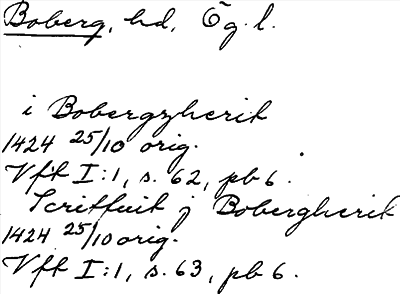 Boberg, hd, Ög. l.
i Bobergzherit
1424 25/10 orig.
Vftt I:1, s. 62, pb 6.
Scriffuit j Bobergherit
1424 25/10 orig.
Vftt I:1, s. 63, pb 6.